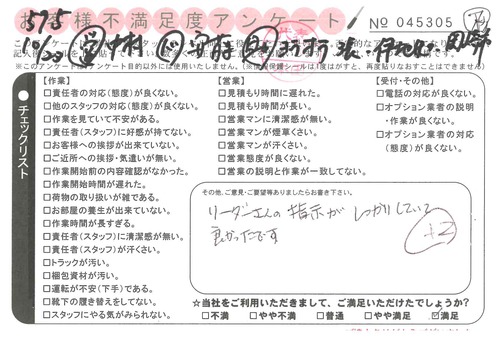 お客様不満足度アンケート!
№ 045305
575
10/23
チェックリスト
【作業】
□責任者の対応(態度)が良くない。
□他のスタッフの対応(態度)が良くない。
□作業を見ていて不安がある。
□責任者(スタッフ)に好感が持てない。
□お客様への挨拶が出来ていない。
□ご近所への挨拶・気遣いが無い。
□作業開始前の内容確認がなかった。
□作業開始時間が遅れた。
□荷物の取り扱いが雑である。
□お部屋の養生が出来ていない。
□作業時間が長すぎる。
□責任者(スタッフ)に清潔感が無い。
□責任者(スタッフ)が汗くさい。
□トラックが汚い。
□梱包資材が汚い。
□運転が不安(下手)である。
□靴下の履き替えをしてない。
□スタッフにやる気がみられない。
【営業】
□見積もり時間に遅れた。
□見積もり時間が長い。
□営業マンに清潔感が無い。
□営業マンが煙草くさい。
□営業マンが汗くさい。
□営業態度が良くない。
□営業の説明と作業が一致してない。
【受付・その他】
□電話の対応が良くない。
□オプション業者の説明
・作業が良くない。
□オプション業者の対応
(態度)が良くない。
その他、ご意見・ご要望等ありましたらお書き下さい。
リーダーさんの指示がしっかりしていて
良かったです
+2
☆当社をご利用いただきまして、ご満足いただけたでしょうか?
□不満 □やや不満 □普通 □やや満足 ☑満足